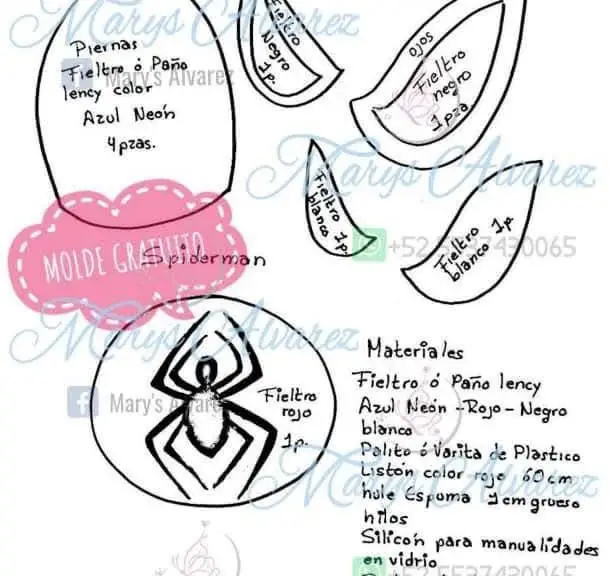 Marys Alvarez
Piernas
Fieltro ó Paño
lency color
Azul Neón
4 pzas.
Mary's Alvarez
Fieltro
Negro
1 p.
ojos
Fieltro
negro
1 pza
Marys Alvarez
Fieltro 1p.
blanco
Fieltro 1p.
blanco
+52 5537430065
MOLDE GRATUITO
Spiderman
Marys Alvarez
Mary's Alvarez
Fieltro
rojo
1 p.
Materiales
Fieltro ó Paño lency
Azul Neón - Rojo - Negro
blanco
Palito ó Varita de Plastico
Listón color rojo 60 cm
hule Espuma 1 cm grueso
hilos
Silicón para manualidades
en vidrio
Marys Alvarez